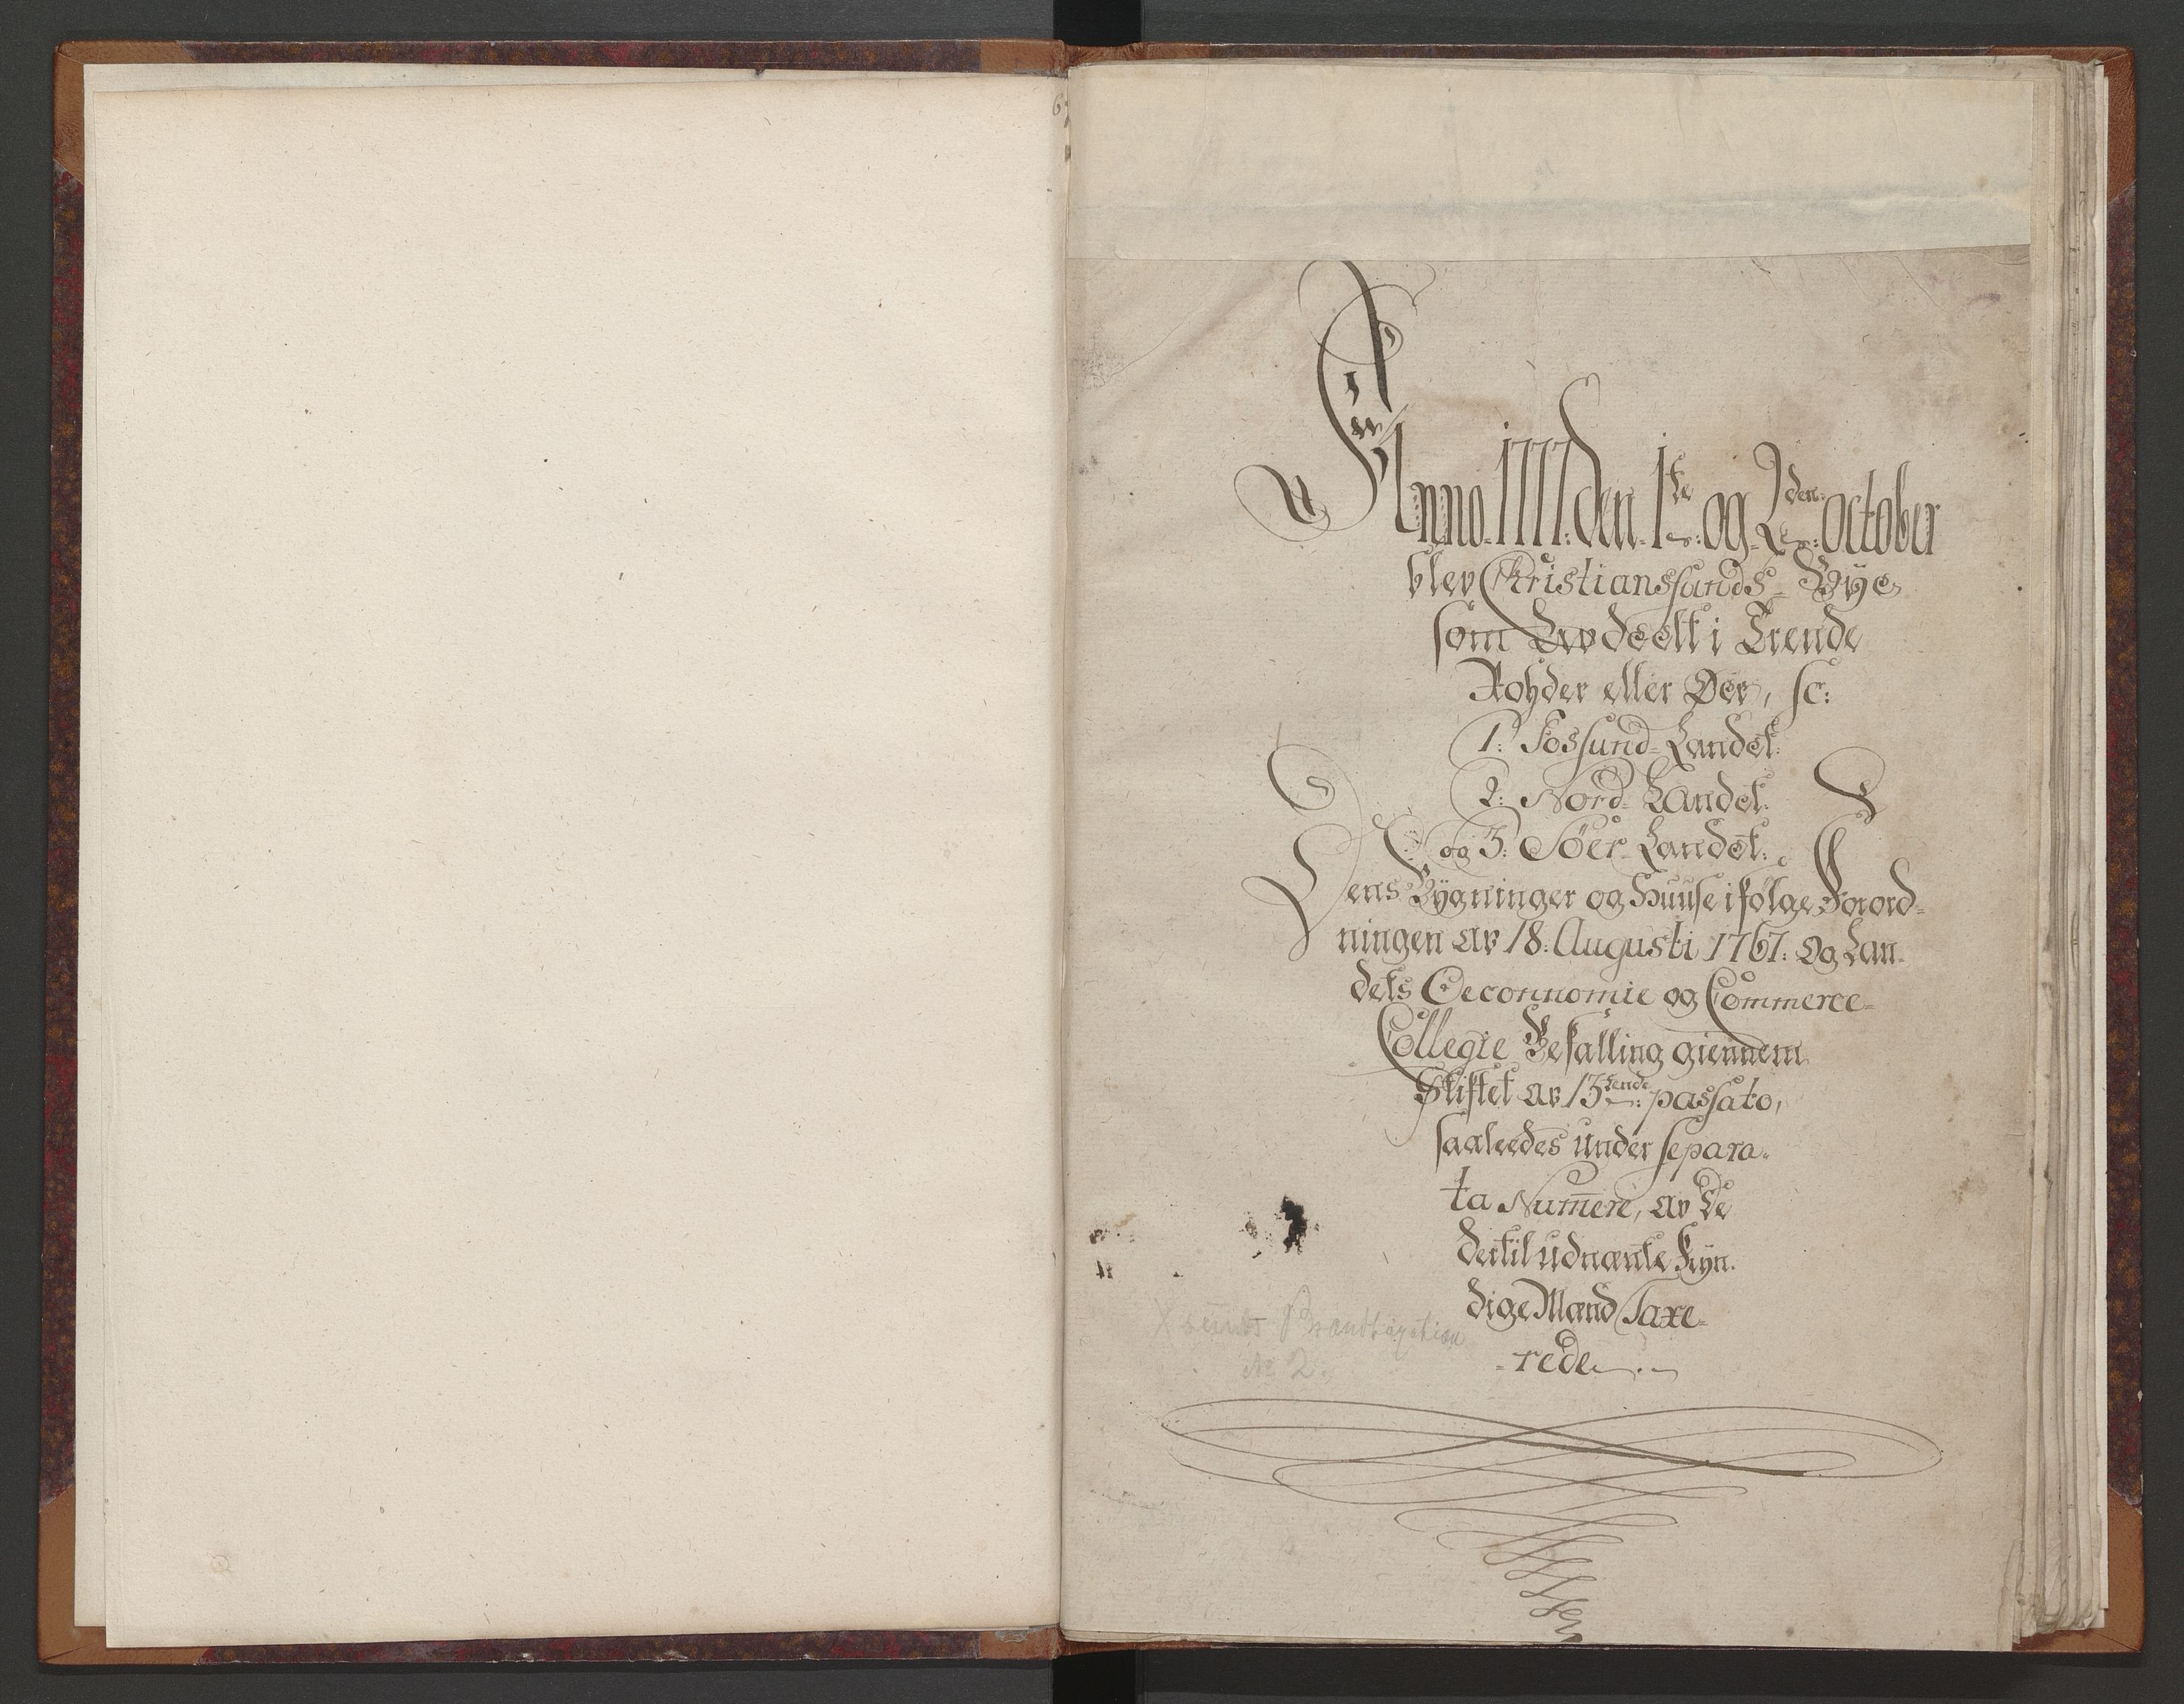 Anno. 1777. den. 1te og. 2den October
blev Christianssunds Bÿe
som er deelt i Trende
Roder eller Øer, sc:
1: Fossund-Landet:
2: Nord-Landet:
og 3: Söer-Landet:
Dens Bÿgninger og Huuse i følge Forord-
ningen av 18: Augusti 1767: Og Lan-
dets Oeconnomie og Commerce-
Collegie Befalling giennem
Stiftet av 13tende passato,
saaleedes under separa-
ta Numere, av De
dertil udnævnte Kÿn-
dige Mænd Taxe-
-rede
Xsunds Brandtaxation
No 2.